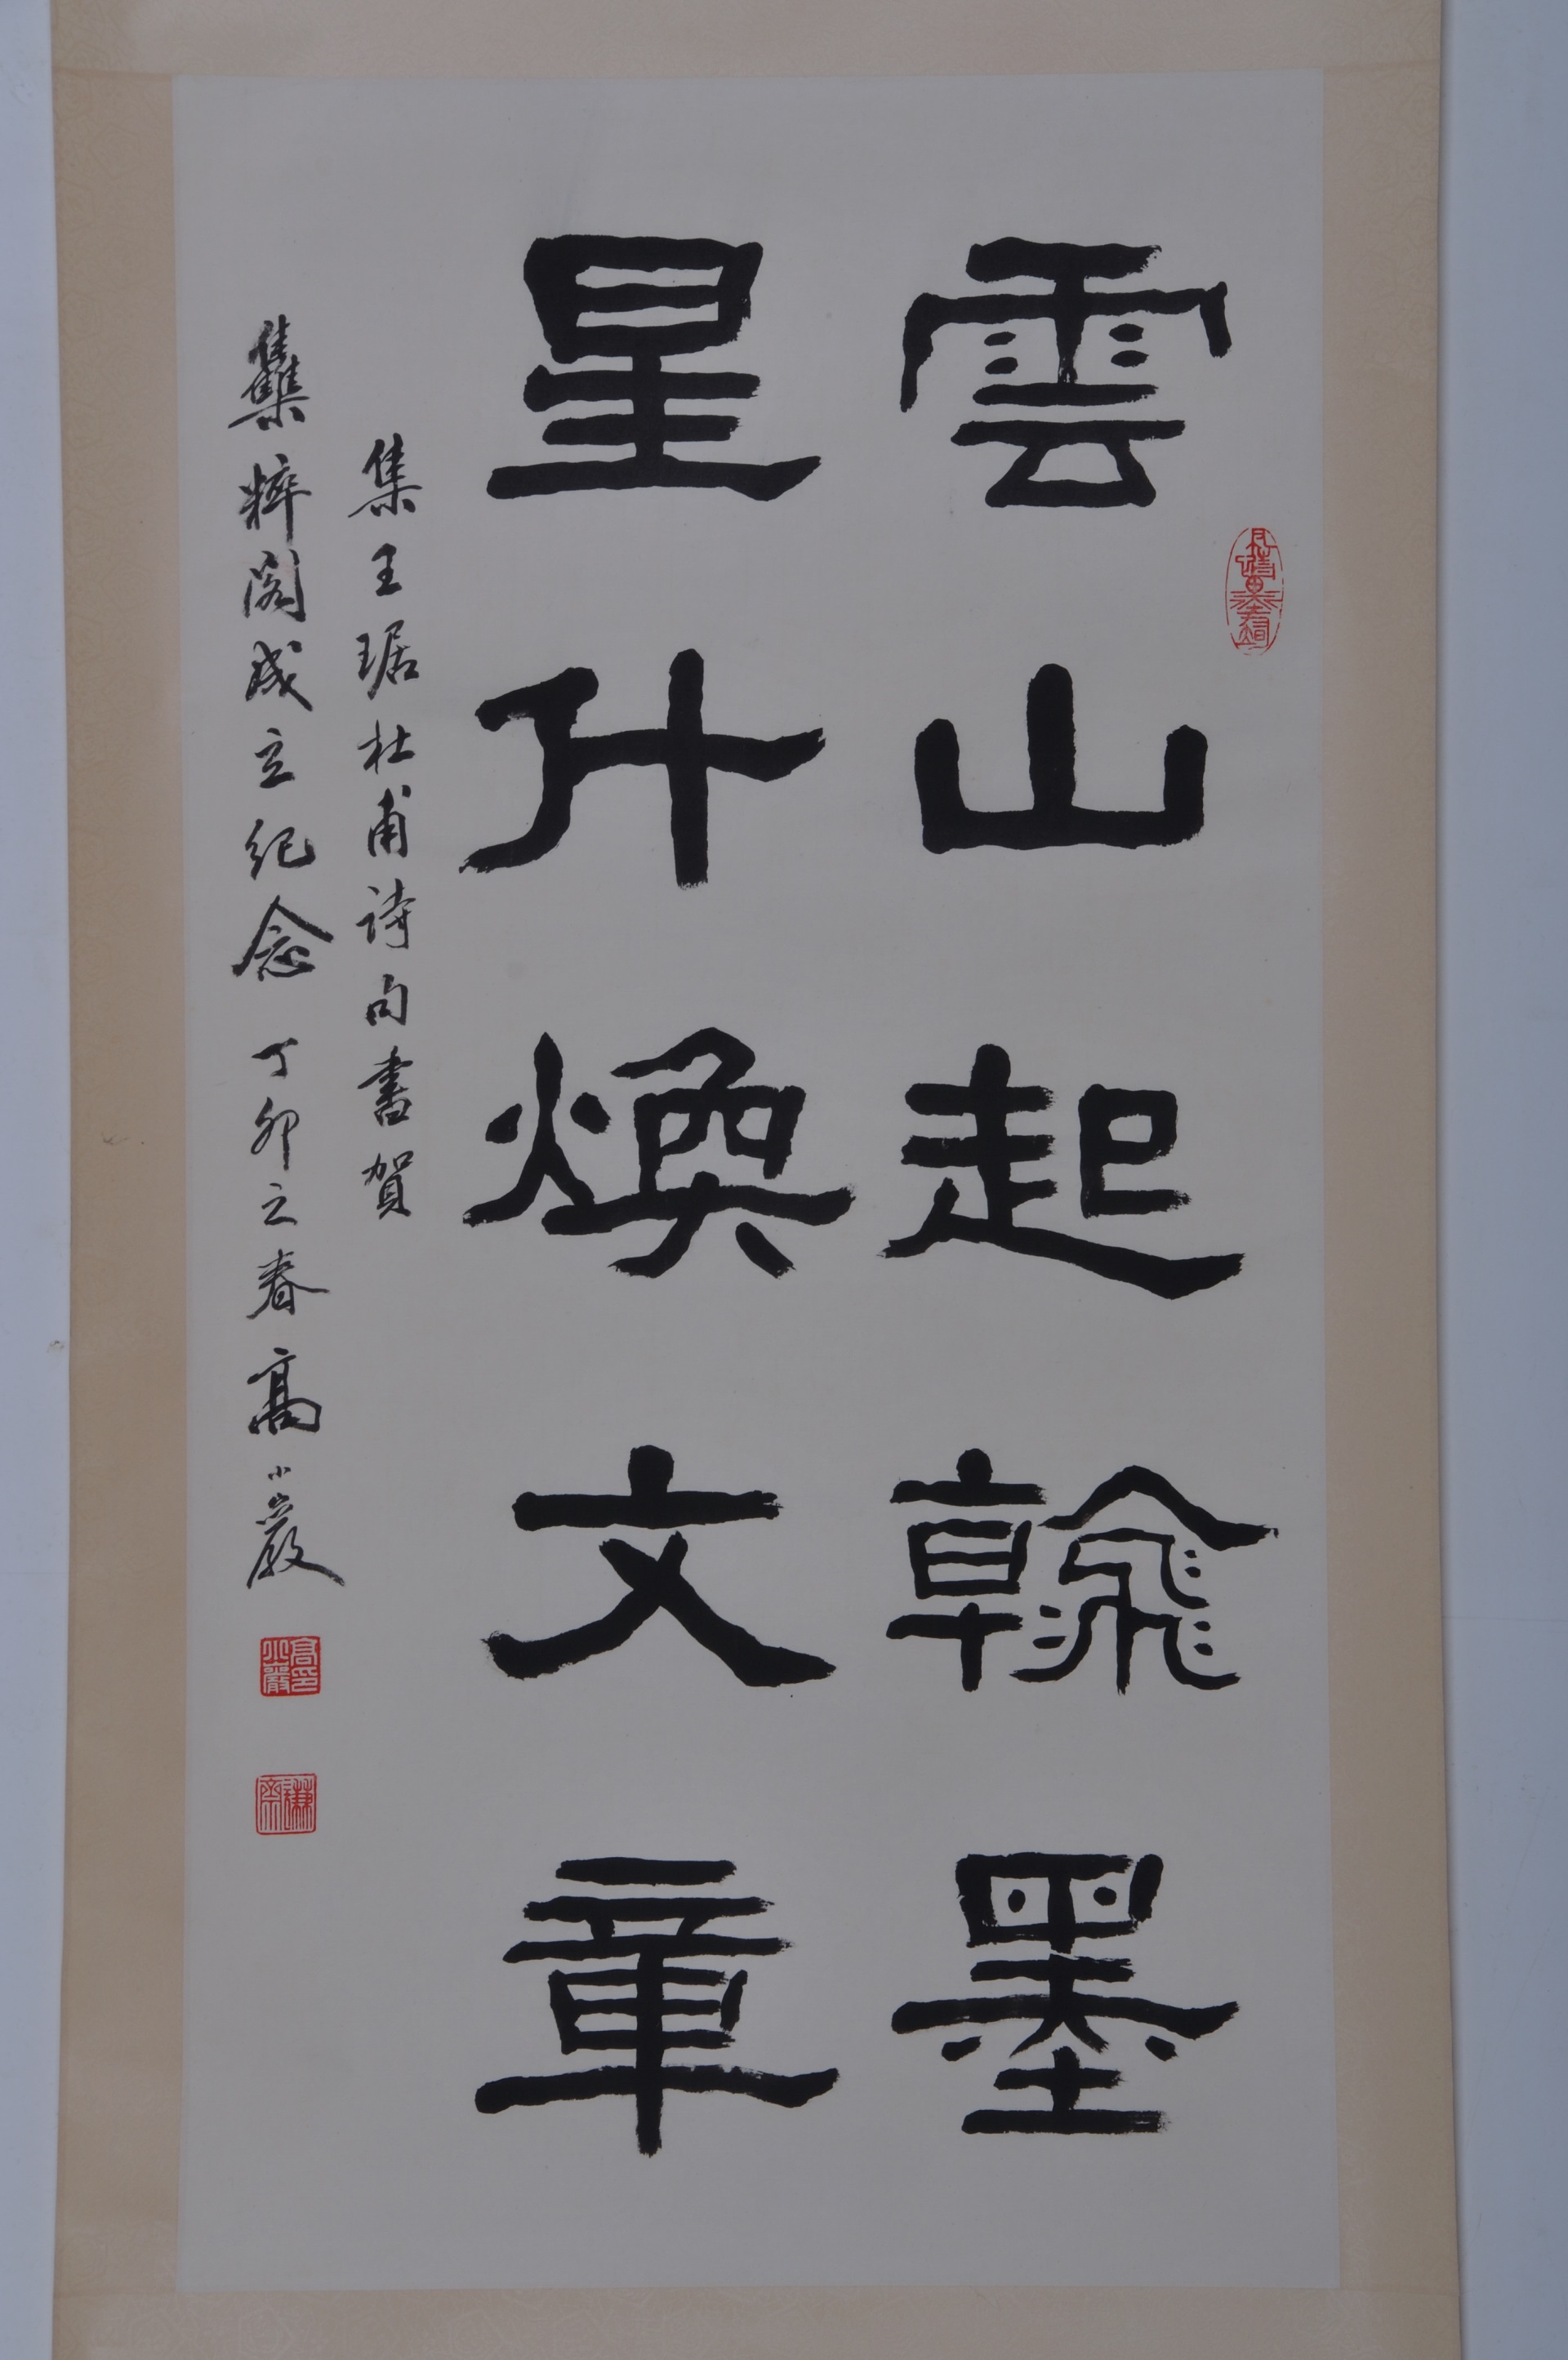 雲山起翰墨
星斗煥文章
集王琚杜甫詩句書賀
集粹閣成立紀念 丁卯之春 高小巖
高小巖印